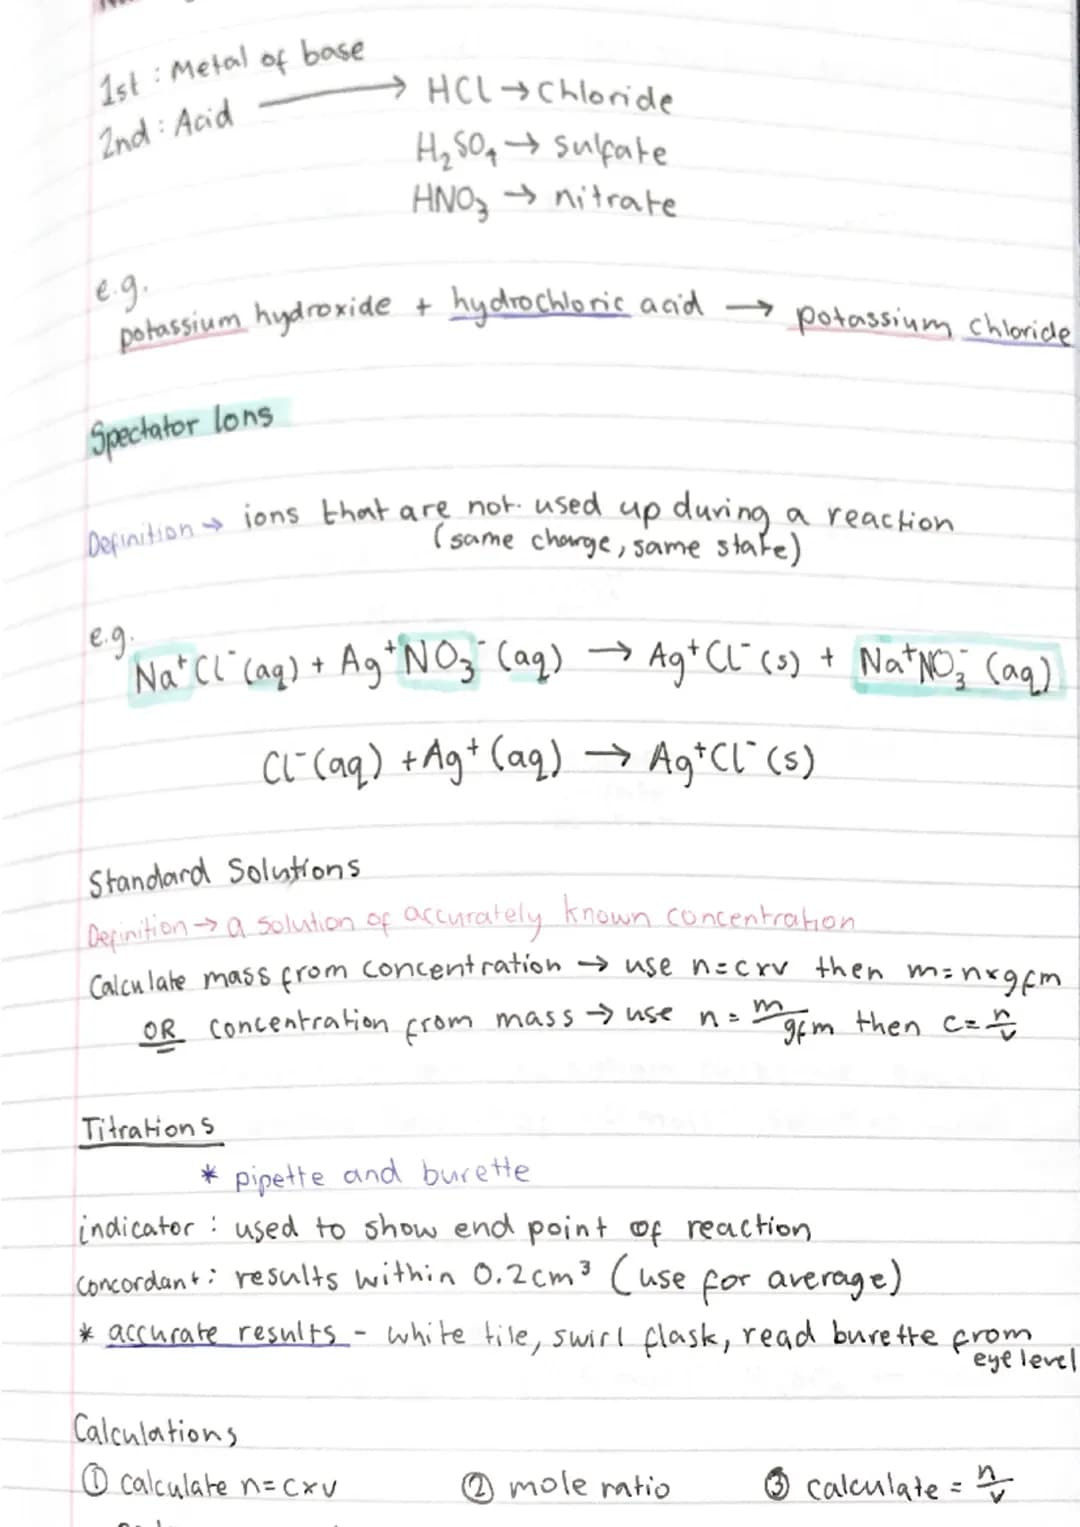 1st : Metal of base
2nd : Acid ⟶ HCl → Chloride
H₂SO₄ → sulfate
HNO₃ → nitrate
e.g.
potassium hydroxide + hydrochloric acid → potassium chloride
Spectator Ions
Definition → ions that are not used up during a reaction
(same charge, same state)
e.g.
Na⁺Cl⁻ (aq) + Ag⁺NO₃⁻ (aq) → Ag⁺Cl⁻ (s) + Na⁺NO₃⁻ (aq)
Cl⁻ (aq) + Ag⁺ (aq) → Ag⁺Cl⁻ (s)
Standard Solutions
Definition → a solution of accurately known concentration
Calculate mass from concentration → use n=c×v then m=n×gfm
OR concentration from mass → use n = m/gfm then c= n/v
Titrations
* pipette and burette
indicator : used to show end point of reaction
concordant : results within 0.2cm³ (use for average)
* accurate results - white tile, swirl flask, read burette from
eye level
Calculations
① calculate n= c×v ② mole ratio ③ calculate = n/v